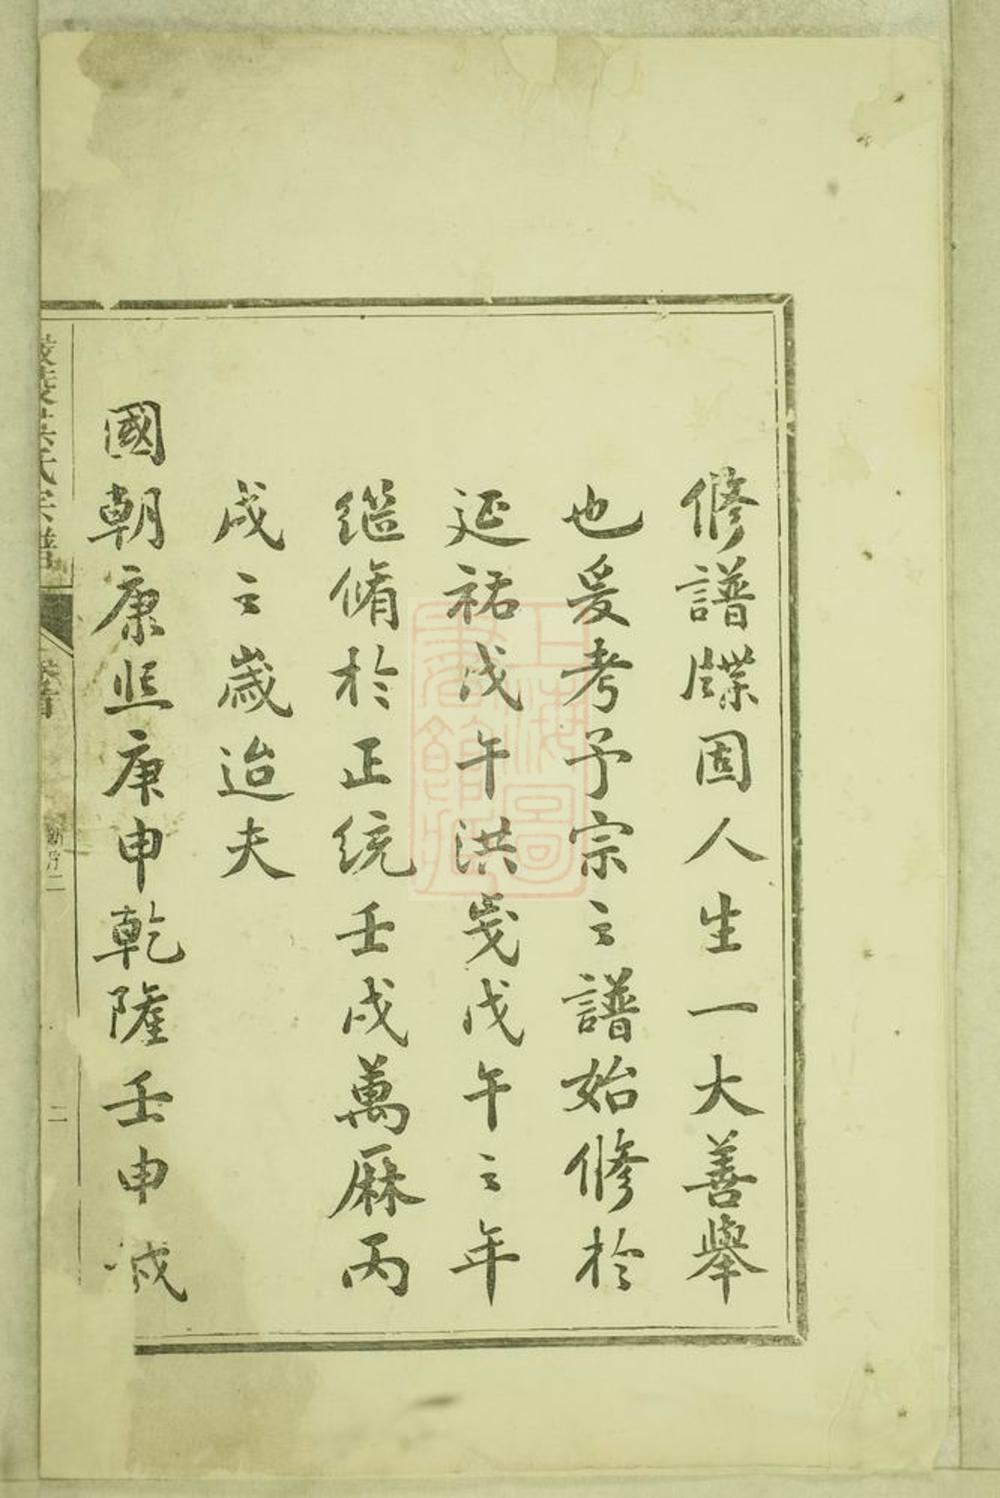 修譜牒固人生一大善舉
也爰考予宗之譜始修於
延祐戊午洪武戊午之年
継脩於正統壬戌萬厤丙
戌之歲迨夫
國朝康熙庚申乾隆壬申
氏宗譜
卷首
二
上海圖書館藏